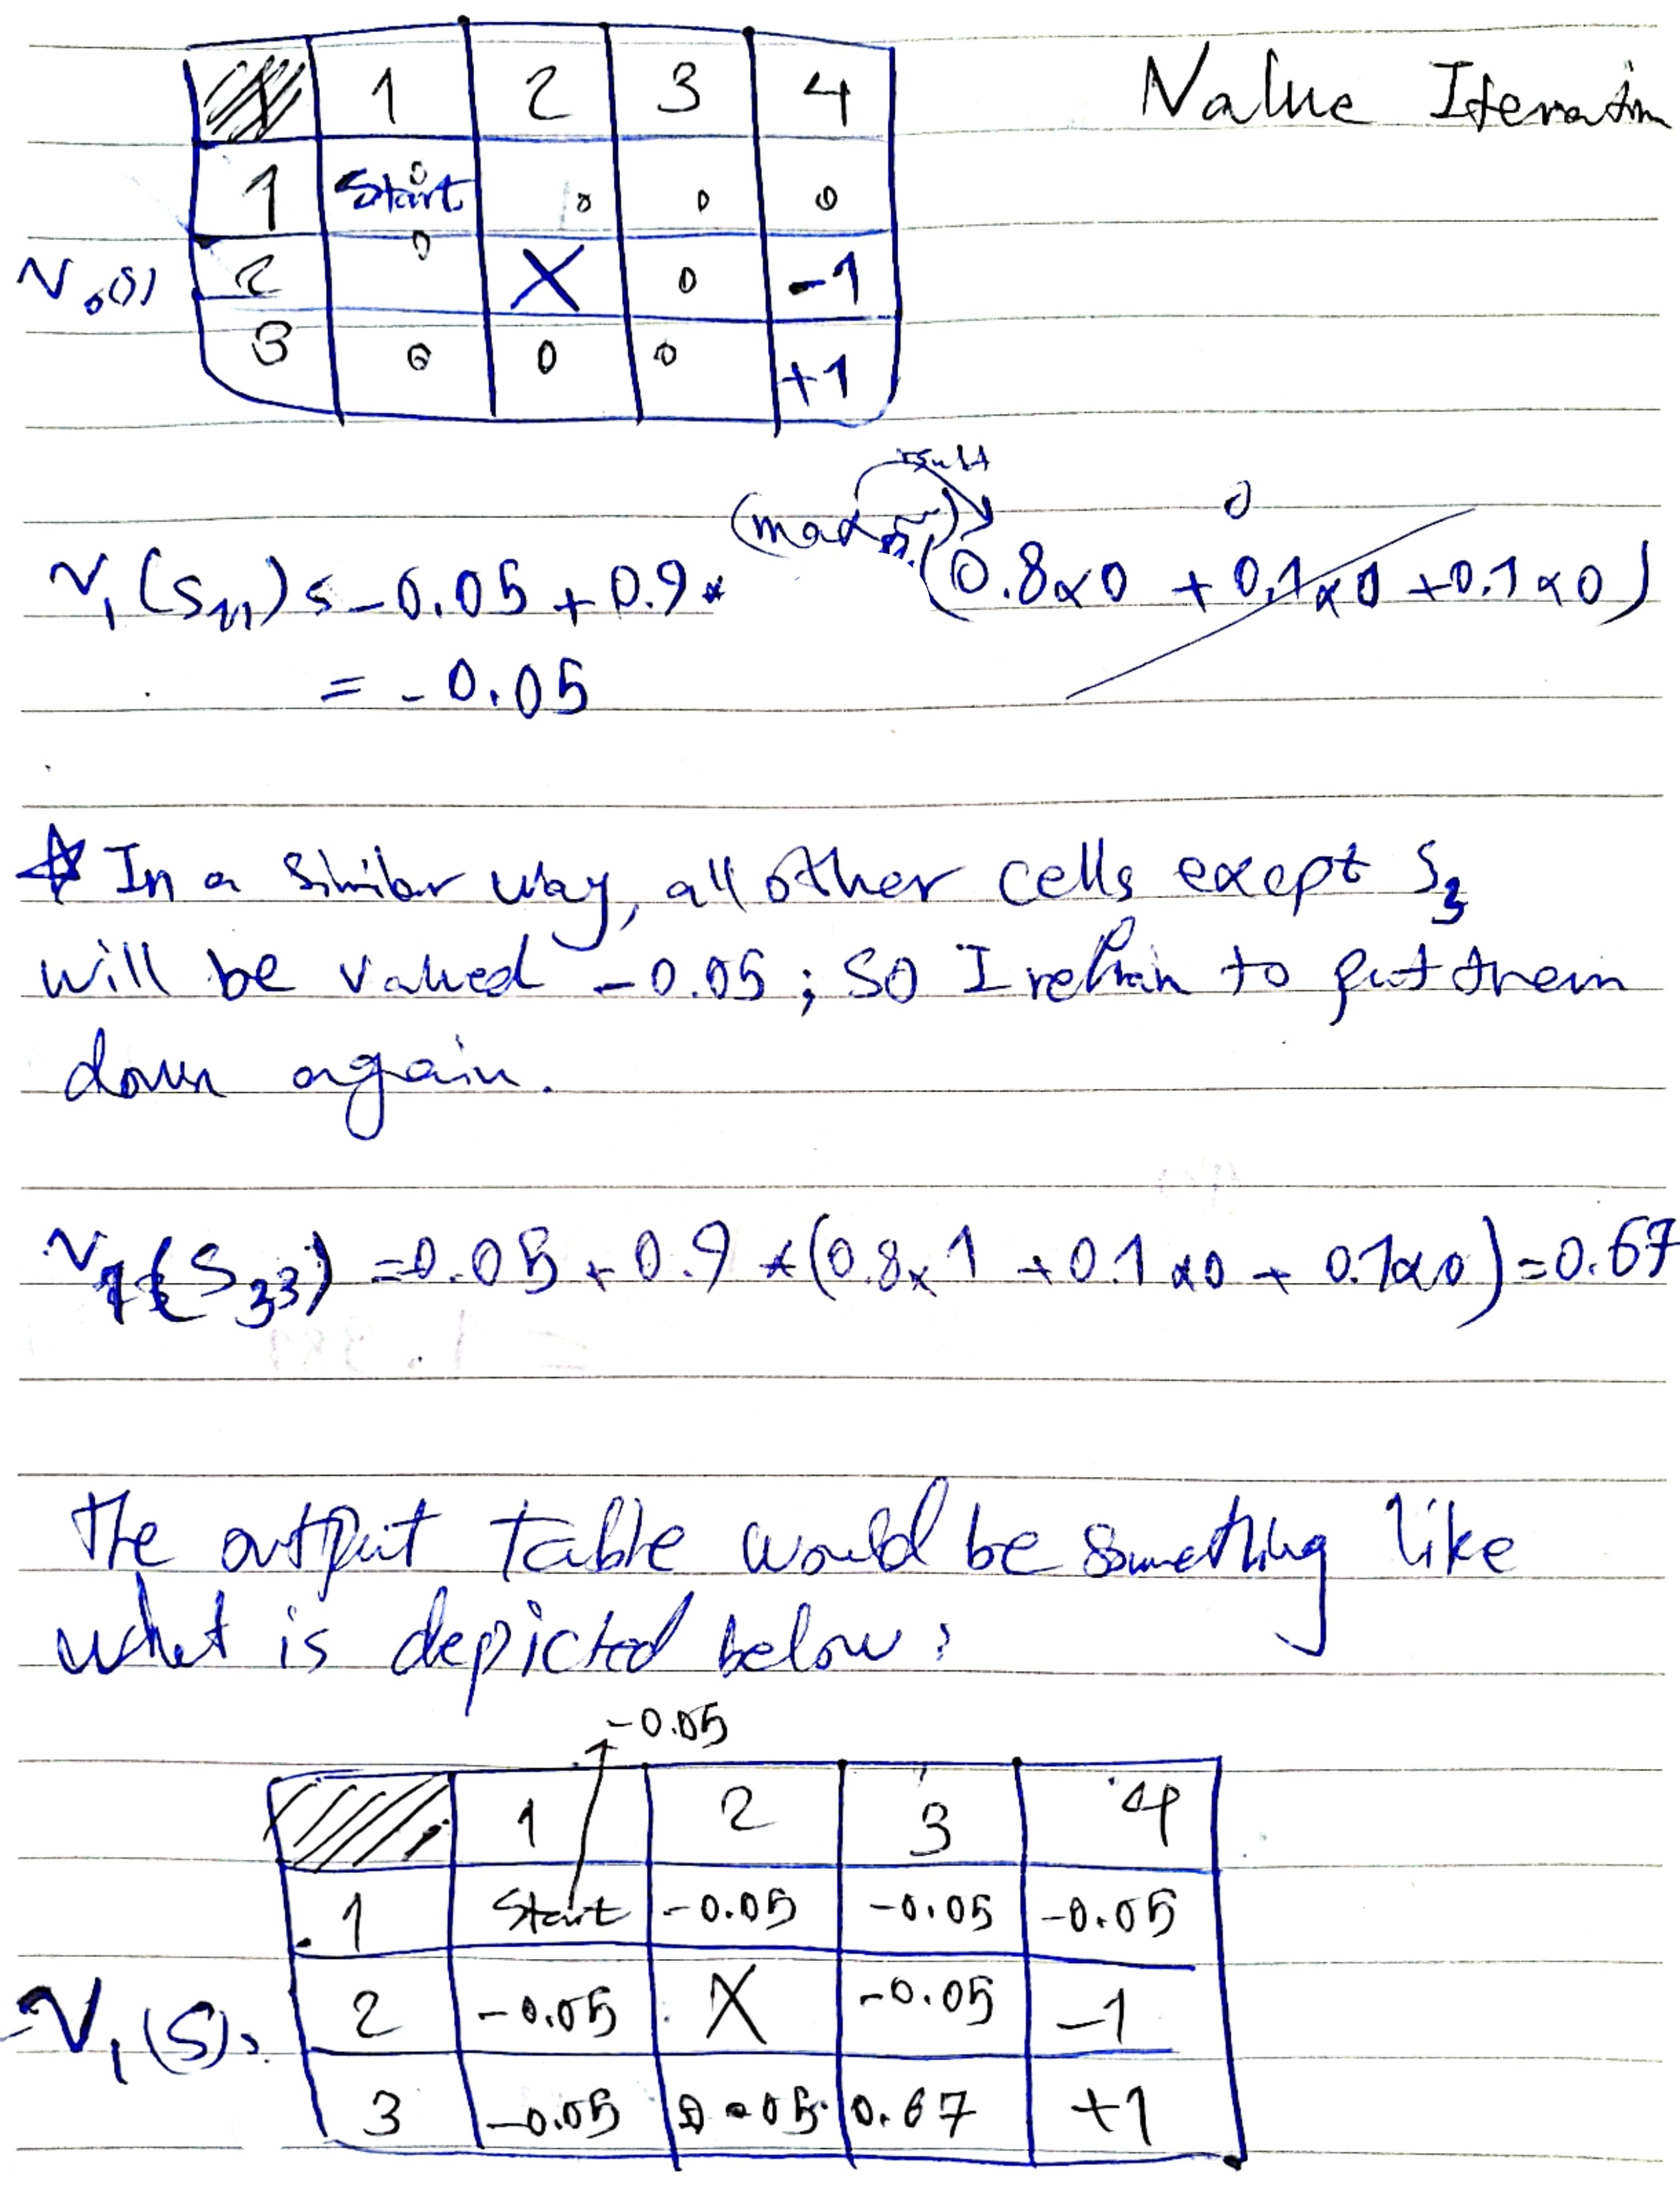 Value Iteration
1 2 3 4
1 Start 0 0 0 0
V₀(s) 2 0 X 0 -1
3 0 0 0 +1
result
(max) 0
V₁(S₁₁) = -0.05 + 0.9 * (0.8×0 + 0.1×0 + 0.1×0)
= -0.05
☆ In a similar way, all other cells except S₃
will be valued -0.05; so I refrain to put them
down again.
V₁(S₃₃) = -0.05 + 0.9 * (0.8×1 + 0.1×0 + 0.1×0) = 0.67
The output table would be something like
what is depicted below:
-0.05
1 2 3 4
1 Start -0.05 -0.05 -0.05
V₁(S): 2 -0.05 X -0.05 -1
3 -0.05 0.05 0.67 +1